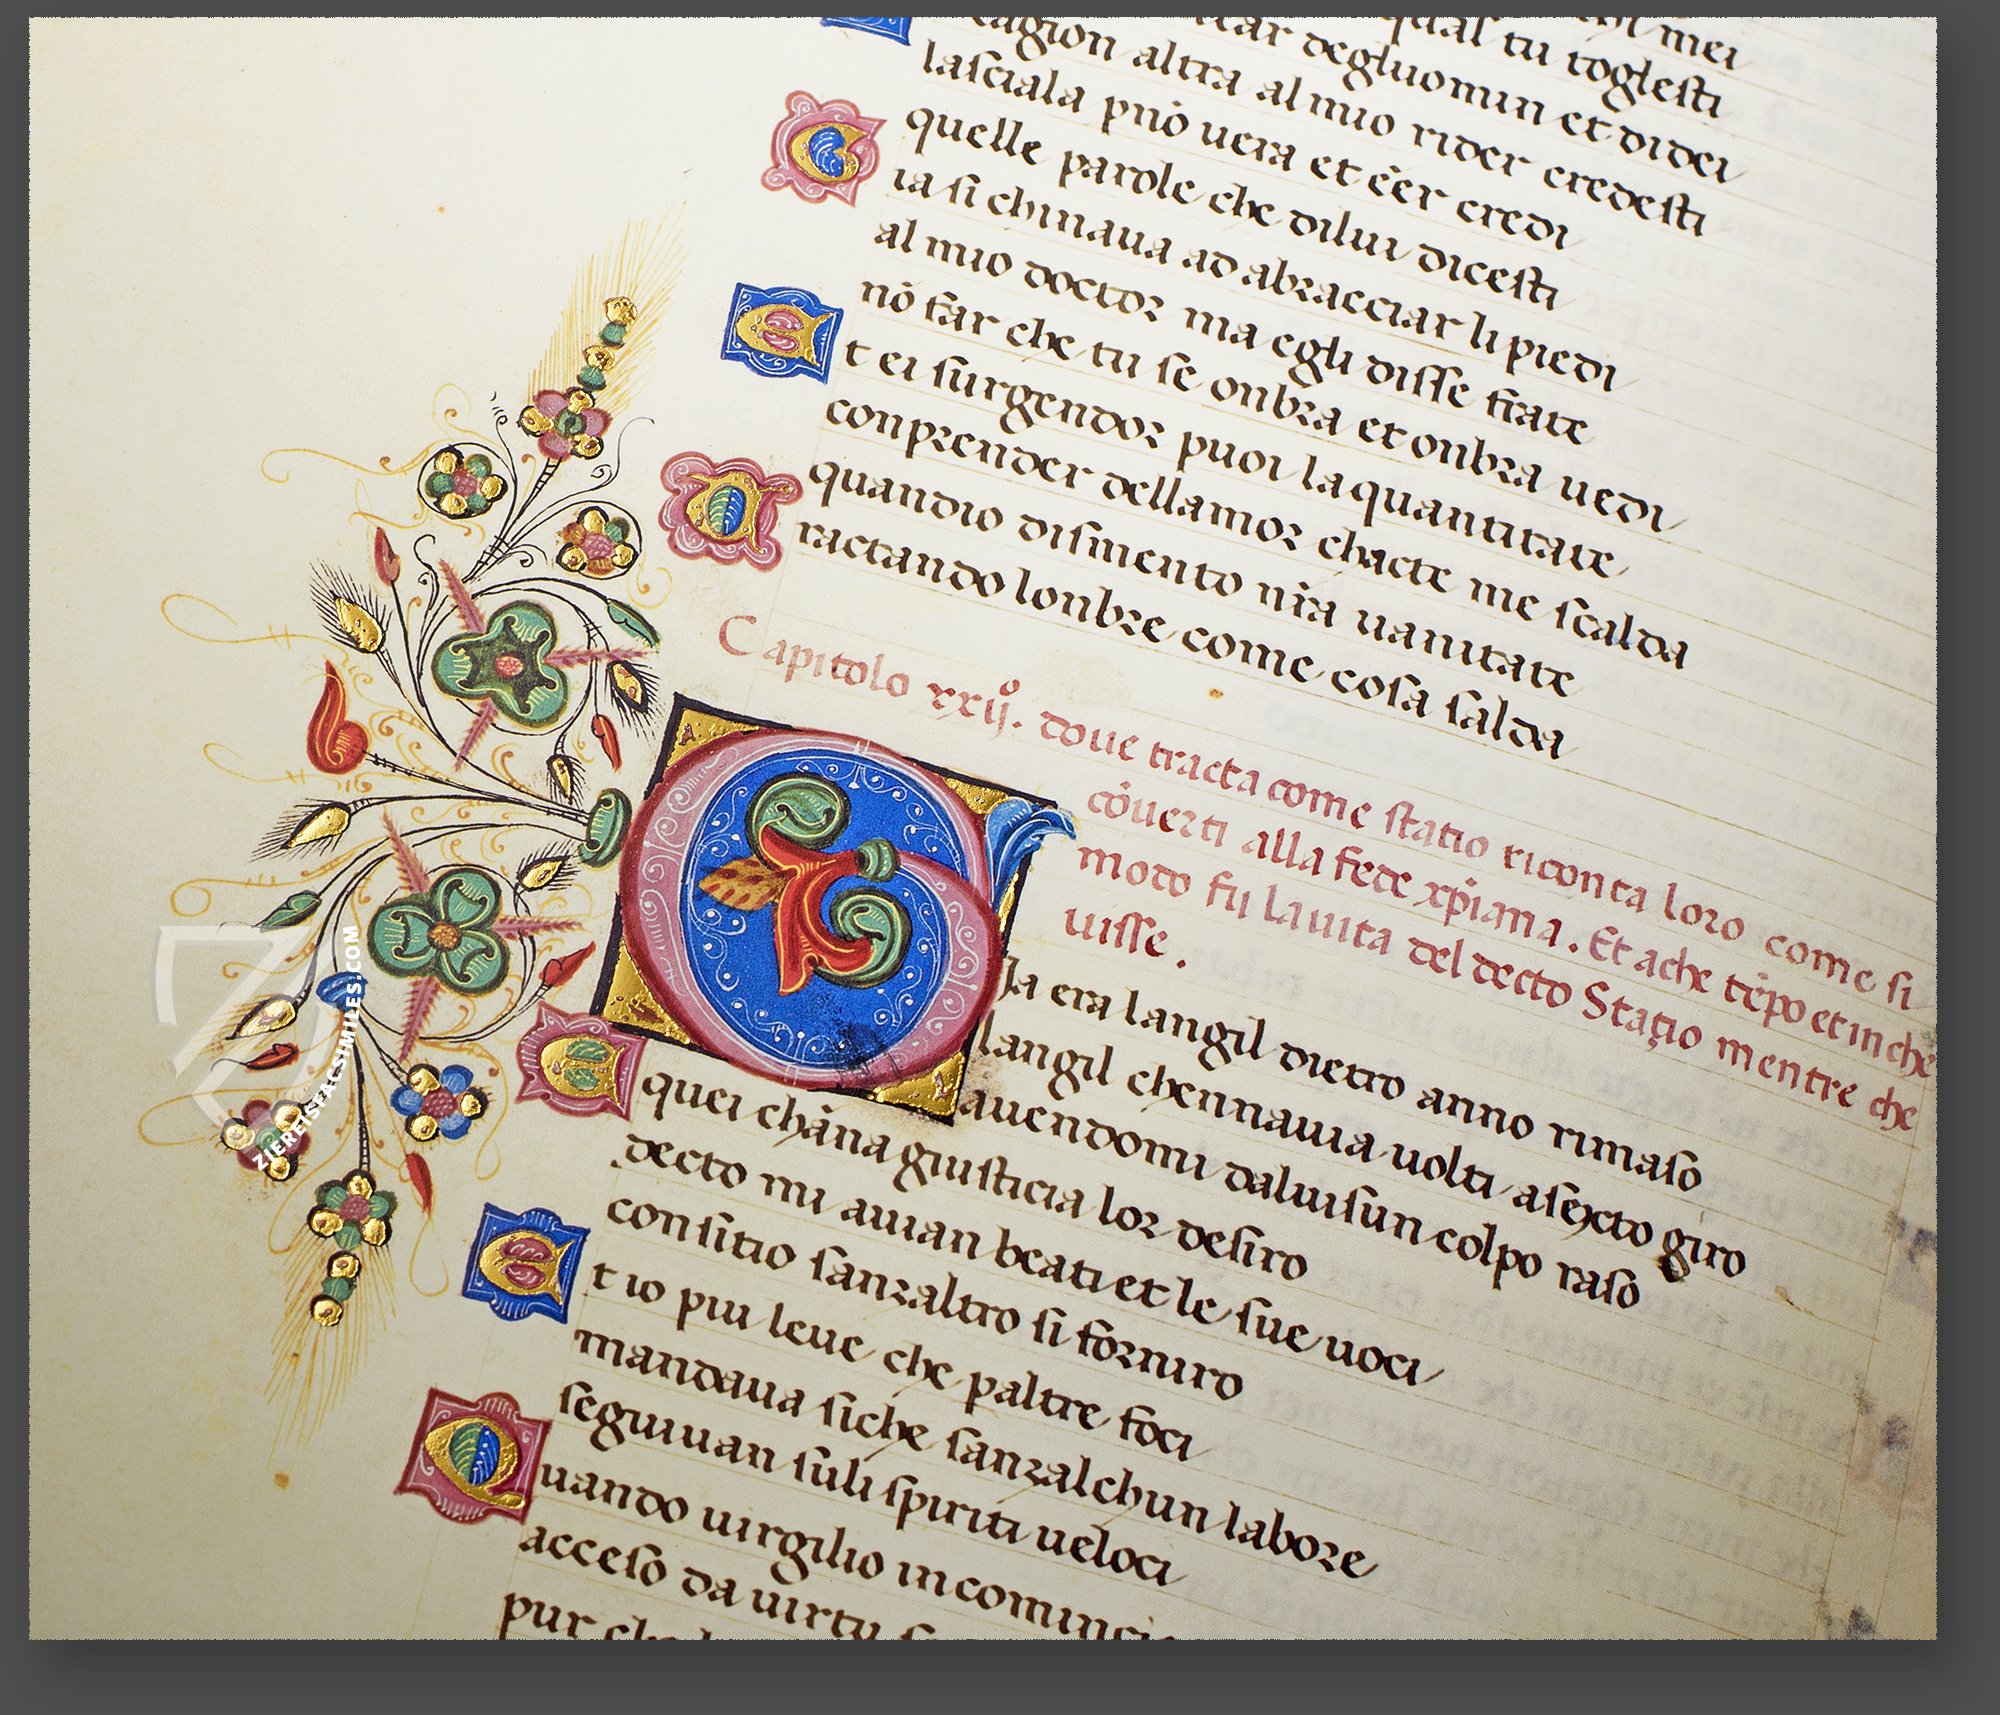 mei
qual tu toglesti
car degluomin et didei
cagion altra al mio rider credesti
lasciala pñò uera et eer credi
quelle parole che dilui dicesti
G ia si chinaua ad abracciar li piedi
al mio doctor ma egli disse frate
nō far che tu se onbra et onbra uedi
E t ei surgendor puoi la quantitate
conprender dellamor chacte me scalda
quandio dismento nr̄a uanitate
T ractando lonbre come cosa salda
Capitolo xxijº. doue tracta come statio riconta loro come si
cōuerti alla fede xp̄iana. Et ache tēpo et in che
modo fu lauita del decto Statio mentre che
uisse.
G Ja era langil dietro anno rimaso
langil chennauia uolti asexto giro
auendomi daluisun colpo raso
E quei chāna giusticia lor desiro
decto mi auian beati et le sue uoci
con sitio sanzaltro si forniro
E t io piu leue che paltre foci
mandaua siche sanzalchun labore
seguiuan suli spiriti ueloci
Q uando uirgilio incomincio
acceso da uirtu
pur che
ZIEREISFACSIMILES.COM